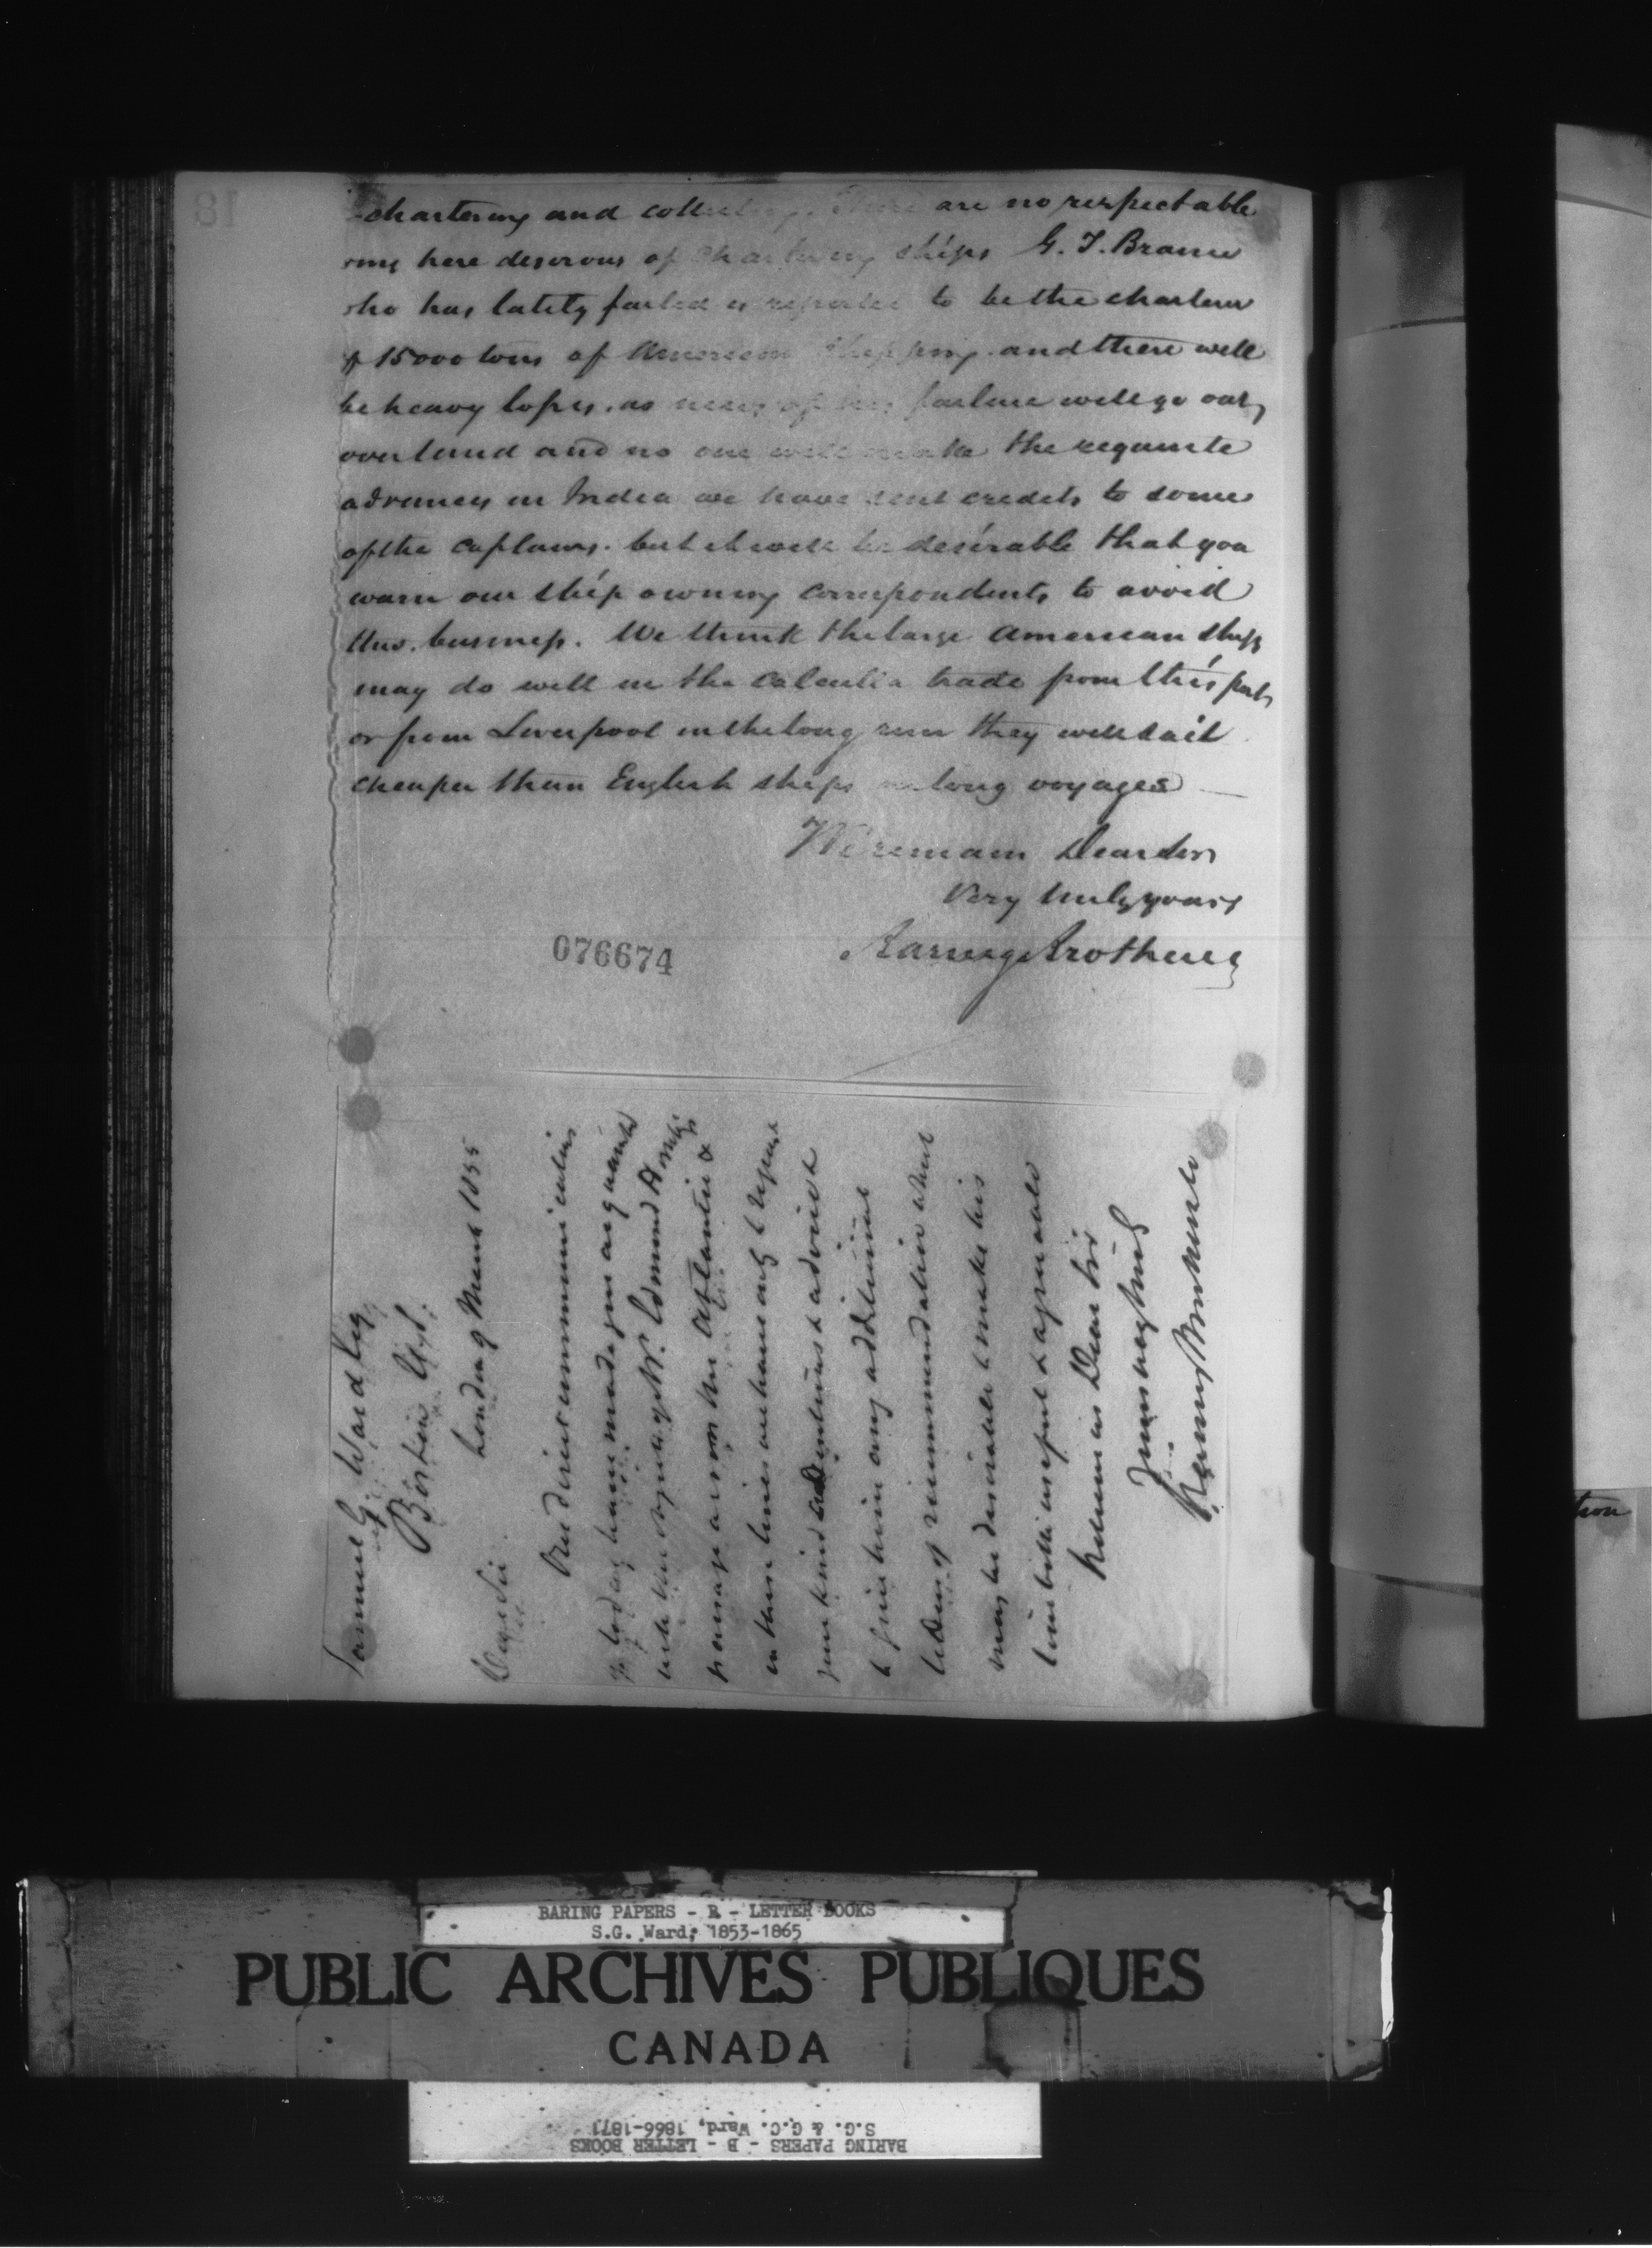 chartering and collecting. There are no respectable
here desirous of chartering ships G. T. Braine
who has lately failed is reported to be the charterer
of 15000 tons of American shipping and there will
be heavy losses. as news of his failure will go out
overland and no one will make the requisite
advances in India we have sent credits to some
of the captains. but it will be desirable that you
warn our ship owning correspondents to avoid
this business. We think the large American ships
may do well in the Calcutta trade from this port
or from Liverpool in the long run they will sail
cheaper than English ships on long voyages
We remain Dear Sir
Very truly yours
Baring Brothers
076674
Samuel G. Ward Esq
Boston
London 9 March 1855
Dear Sir
Our direct communication
of today have made you acquainted
with the of Mr. Edmond
passage across the Atlantic &
in these lines we have only to repeat
your kind attentions & advice &
to give him any additional
letters of recommendation which
may be desirable to make his
time both useful & agreeable
Remain Dear Sir
Yours very truly
Baring Brothers
18
tion
BARING PAPERS - B - LETTER BOOKS
S.G. Ward, 1853-1865
PUBLIC ARCHIVES PUBLIQUES
CANADA
BARING PAPERS - B - LETTER BOOKS
S.G. & G.C. Ward, 1866-1871